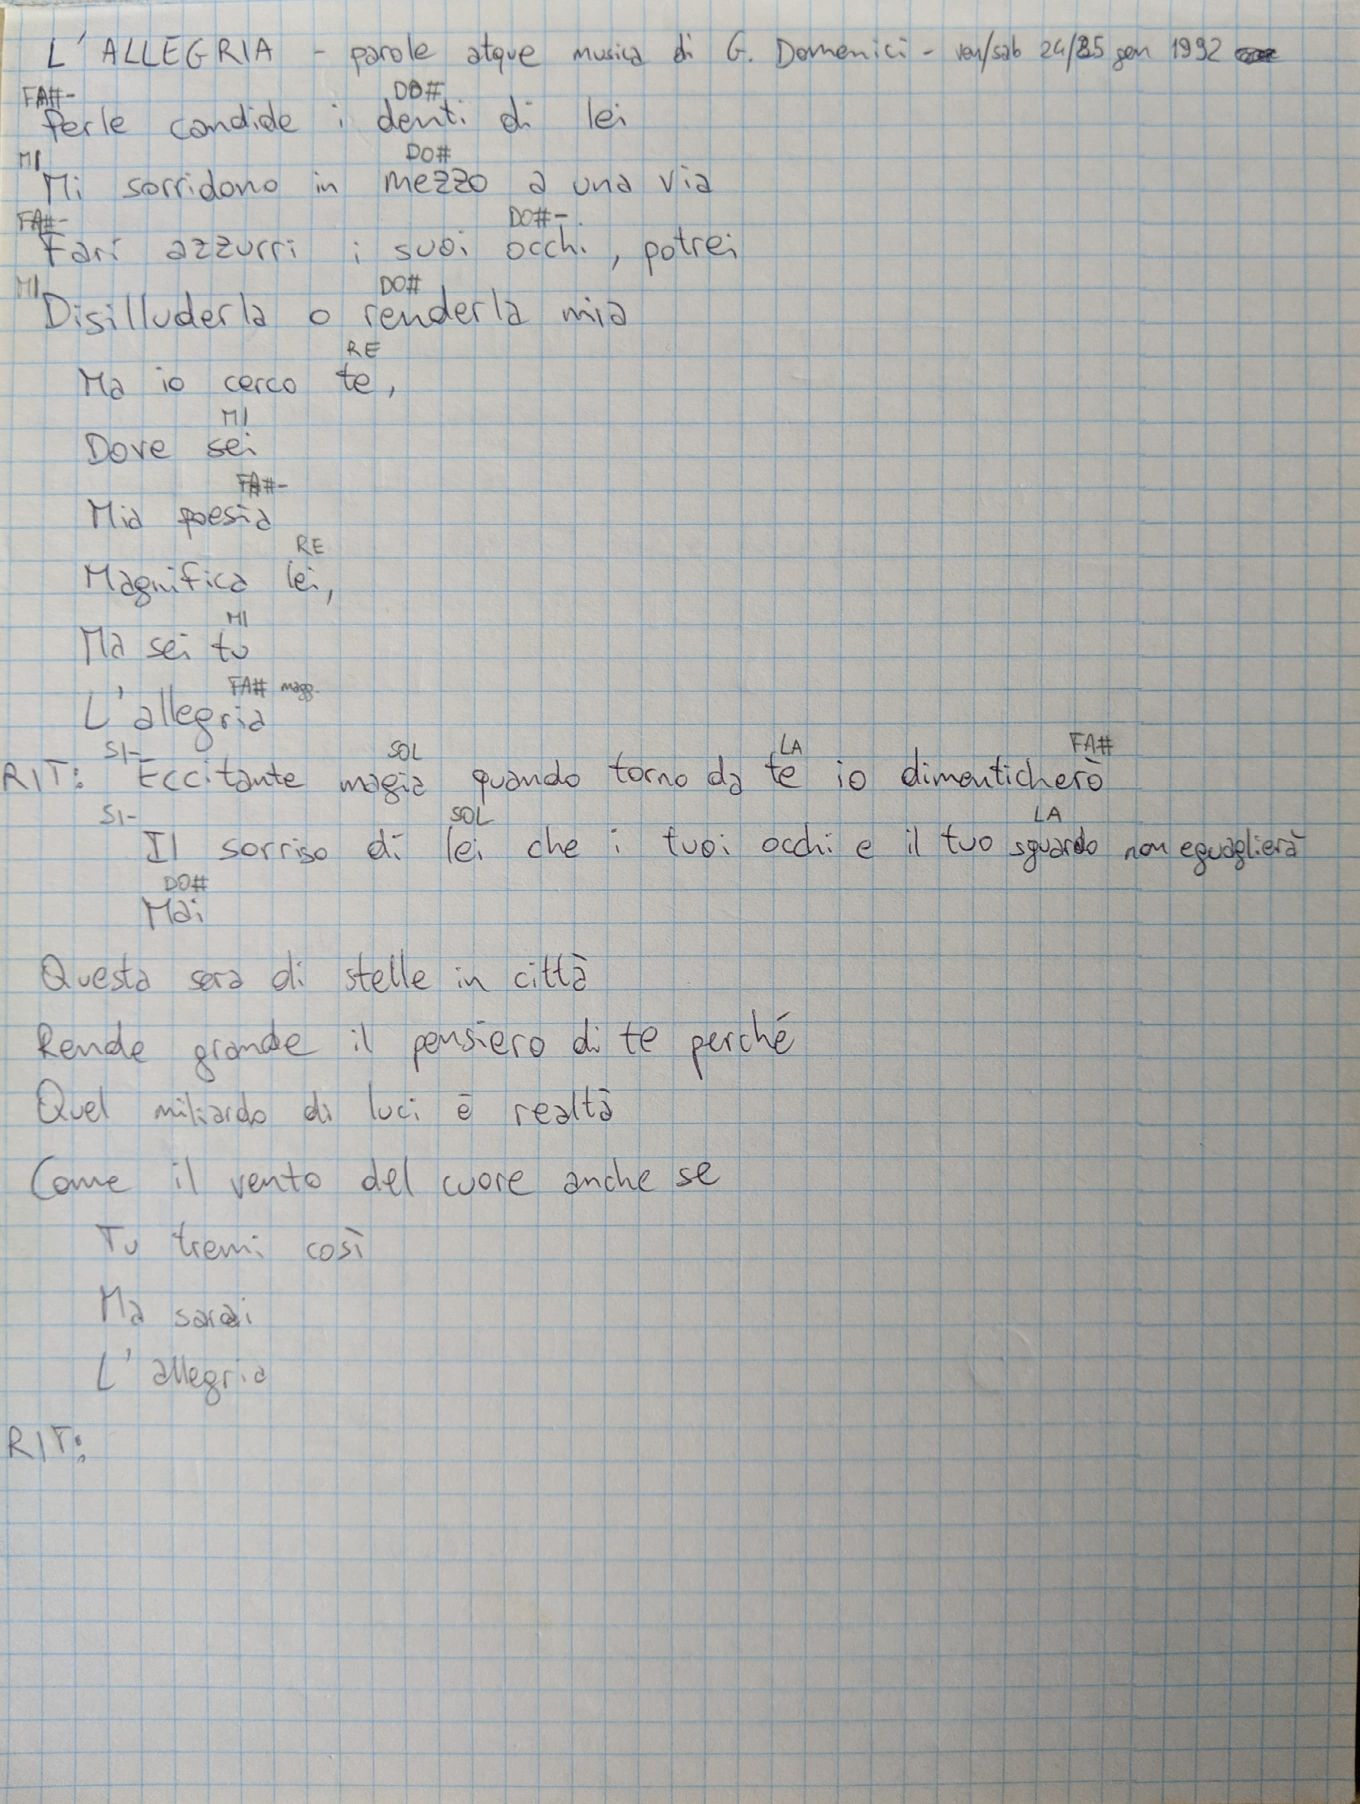 L'ALLEGRIA - parole atque musica di G. Domenici - ven/sab 24/25 gen 1992
FA#- DO#
Perle candide i denti di lei
MI DO#
Mi sorridono in mezzo a una via
FA#- DO#-
Fari azzurri i suoi occhi, potrei
MI DO#
Disilluderla o renderla mia
RE
Ma io cerco te,
MI
Dove sei
FA#-
Mia poesia
RE
Magnifica lei,
MI
Ma sei tu
FA# magg.
L'allegria
SI- SOL LA FA#
RIT: Eccitante magia quando torno da te io dimenticherò
SI- SOL LA
Il sorriso di lei che i tuoi occhi e il tuo sguardo non eguaglierà
DO#
Mai
Questa sera di stelle in città
Rende grande il pensiero di te perché
Quel miliardo di luci è realtà
Come il vento del cuore anche se
Tu tremi così
Ma sarai
L'allegria
RIT: